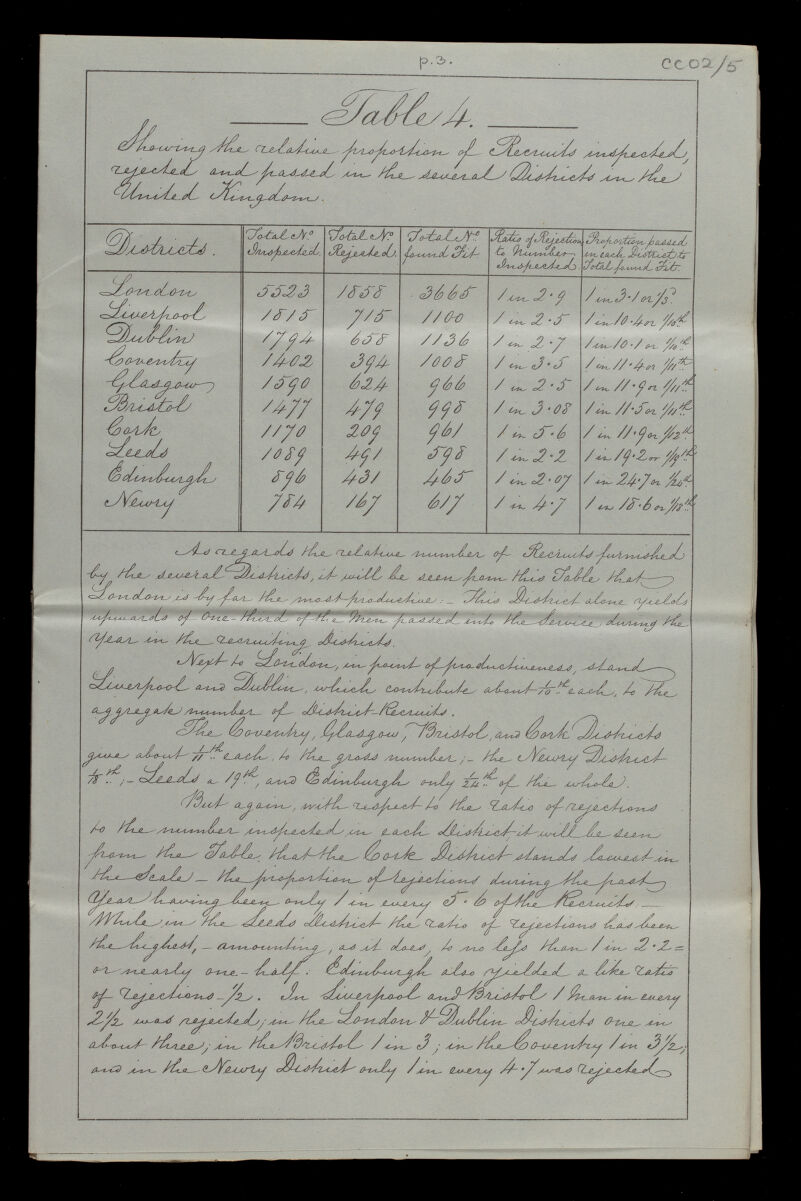 p.3.
CC02/5
Table 4.
Showing the relative proportion of Recruits inspected,
rejected and passed in the several Districts in the
United Kingdom.
Districts. Total No Inspected. Total No. Rejected. Total No. found Fit Ratio of Rejections to Number Inspected Proportion passed in each District to Total found Fit.
London 5523 1858 3665 1 in 2·9 1 in 3·1 or 1/3.d
Liverpool 1815 715 1100 1 in 2·5 1 in 10·4 or 1/10th
Dublin 1794 658 1136 1 in 2·7 1 in 10·1 or 1/10th
Coventry 1402 394 1008 1 in 3·5 1 in 11·4 or 1/11th
Glasgow 1590 624 966 1 in 2·5 1 in 11·9 or 1/11th
Bristol 1477 479 998 1 in 3·08 1 in 11·5 or 1/11th
Cork 1170 209 961 1 in 5·6 1 in 11·9 or 1/12th
Leeds 1089 491 598 1 in 2·2 1 in 19·2 or 1/19th
Edinburgh 896 431 465 1 in 2·07 1 in 24·7 or 1/24th
Newry 784 167 617 1 in 4·7 1 in 18·6 or 1/18th
As regards the relative number of Recruits furnished
by the several Districts, it will be seen from this Table that
London is by far the most productive:– This District alone yields
upwards of one-third of the Men passed into the Service during the
Year in the recruiting Districts.
Next to London, in point of productiveness, stand
Liverpool and Dublin, which contribute about 1/10th each, to the
aggregate number of District-Recruits.
The Coventry, Glasgow, Bristol, and Cork Districts
give about 1/11th each, to the gross number;– the Newry District
1/18th;– Leeds a 19th, and Edinburgh only 1/24th of the whole.
But again, with respect to the ratio of rejections
to the number inspected in each District it will be seen
from the Table, that the Cork District stands lowest in
the Scale – the proportion of rejections during the past
Year having been only 1 in every 5·6 of the Recruits.–
While in the Leeds District the ratio of rejections has been
the highest,– amounting, as it does, to no less than 1 in 2·2 =
or nearly one-half. Edinburgh also yielded a like ratio
of rejections – 1/2. In Liverpool and Bristol 1 Man in every
2 1/2 was rejected; in the London & Dublin Districts one in
about three; in the Bristol 1 in 3; in the Coventry 1 in 3 1/2;
and in the Newry District only 1 in every 4·7 was rejected